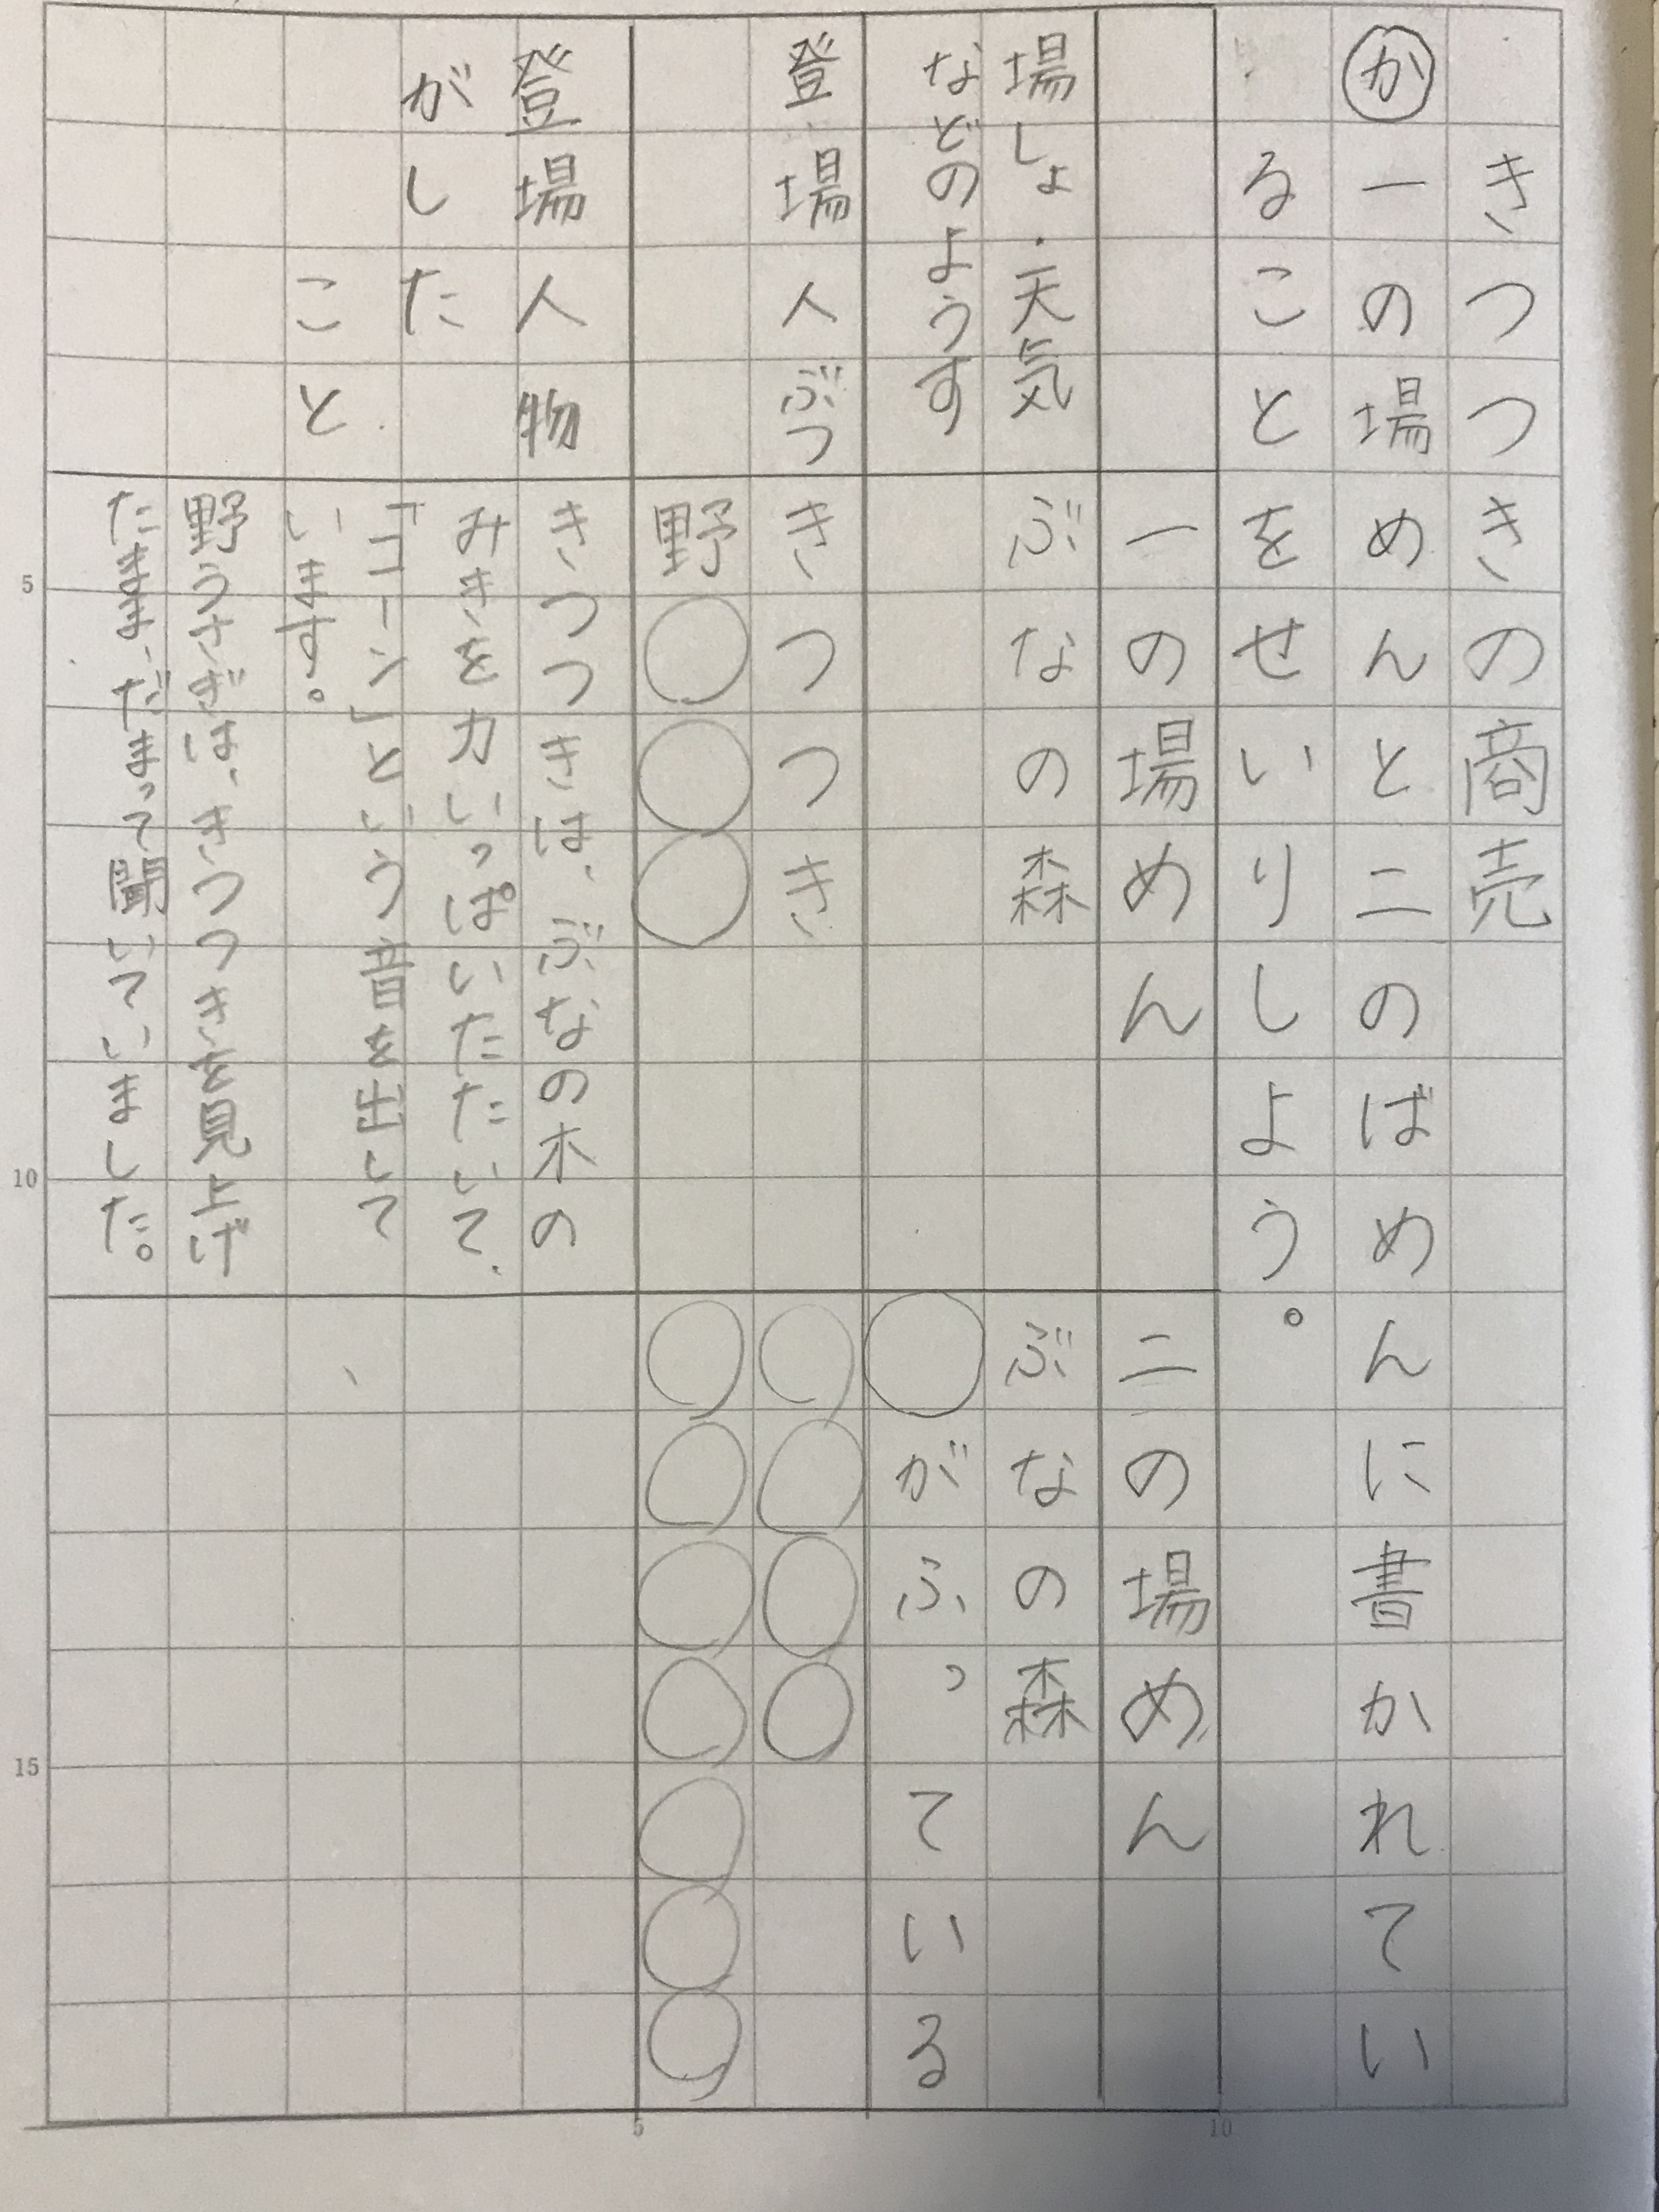 きつつきの商売
か 一の場めんと二のばめんに書かれてい
ることをせいりしよう。
一の場めん
二の場めん
場しょ・天気
などのようす
ぶなの森
ぶなの森
○がふっている
登場人ぶつ
きつつき
野○○○
○○○○
○○○○○○○
登場人物
がした
こと
きつつきは、ぶなの木の
みきを力いっぱいたたいて、
「コーン」という音を出して
います。
野うさぎは、きつつきを見上げ
たまま、だまって聞いていました。
5
10
15
5
10